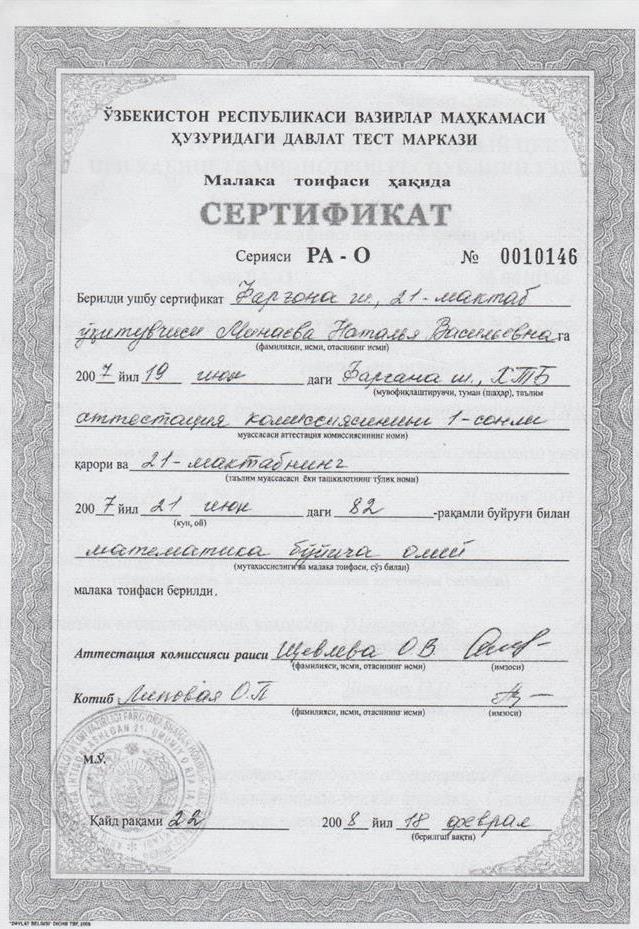 ЎЗБЕКИСТОН РЕСПУБЛИКАСИ ВАЗИРЛАР МАҲКАМАСИ
ҲУЗУРИДАГИ ДАВЛАТ ТЕСТ МАРКАЗИ
Малака тоифаси ҳақида
СЕРТИФИКАТ
Серияси РА - О № 0010146
Берилди ушбу сертификат Фарғона ш, 21-мактаб
ўқитувчиси Минаева Наталья Васильевна га
(фамилияси, исми, отасининг исми)
2007 йил 19 июн даги Фаргана ш., ХТБ
(мувофиқлаштирувчи, туман (шаҳар), таълим
аттестация комиссиясининг 1-сонли
муассасаси аттестация комиссиясининг номи)
қарори ва 21-мактабнинг
(таълим муассасаси ёки ташкилотнинг тўлиқ номи)
2007 йил 21 июн даги 82 -рақамли буйруғи билан
(кун, ой)
математика бўйича олий
(мутахассислиги ва малака тоифаси, сўз билан)
малака тоифаси берилди.
Аттестация комиссияси раиси О В
(фамилияси, исми, отасининг исми) (имзоси)
Котиб Липовая О.П
(фамилияси, исми, отасининг исми) (имзоси)
М.Ў.
Қайд рақами 22 2008 йил 18 феврал
(берилган вақти)